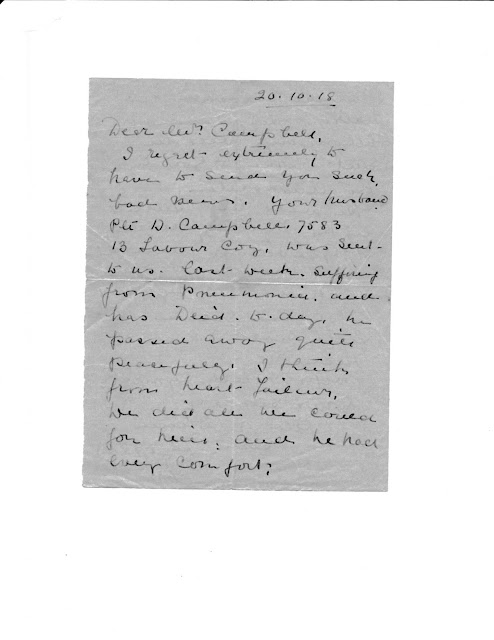 20.10.18
Dear Mrs Campbell,
I regret extremely to
have to send you such
bad news. Your husband
Pte D. Campbell, 7583
13 Labour Coy, was sent
to us last week. Suffering
from Pneumonia. and
has Died to-day, he
passed away quite
peacefully, I think
from heart failure,
We did all we could
for him; and he had
every comfort;